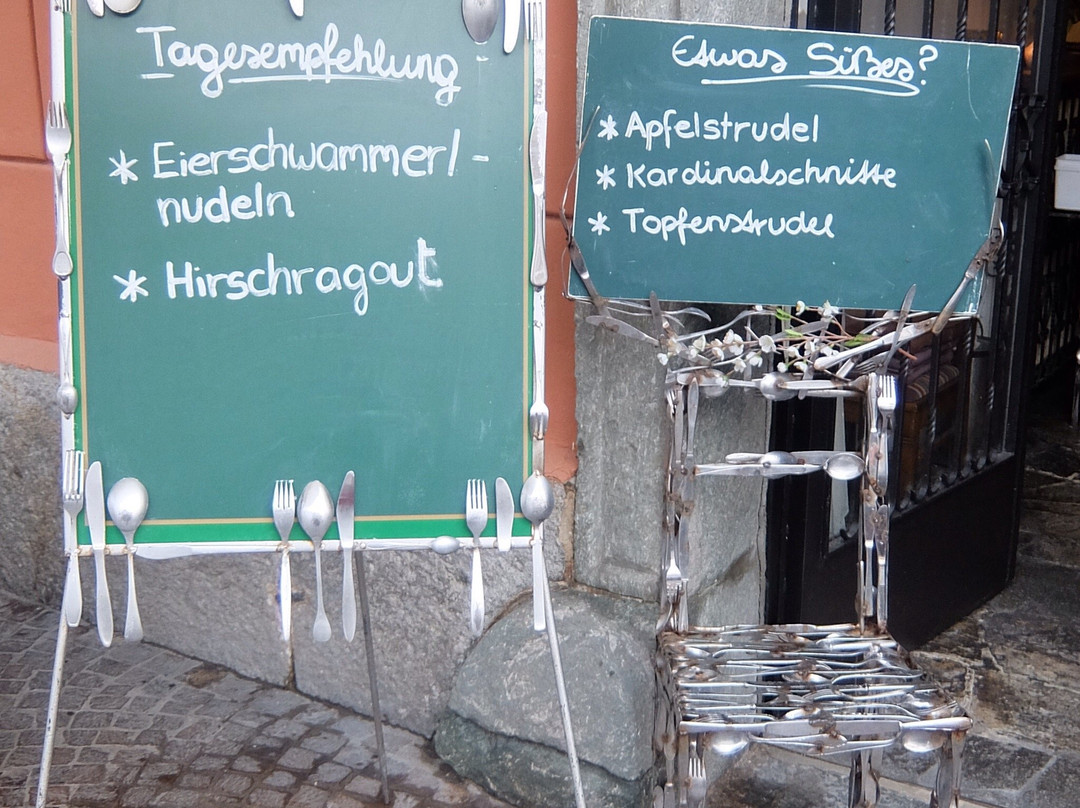 Tagesempfehlung
* Eierschwammerl-
nudeln
* Hirschragout
Etwas Süßes?
* Apfelstrudel
* Kardinalschnitte
* Topfenstrudel